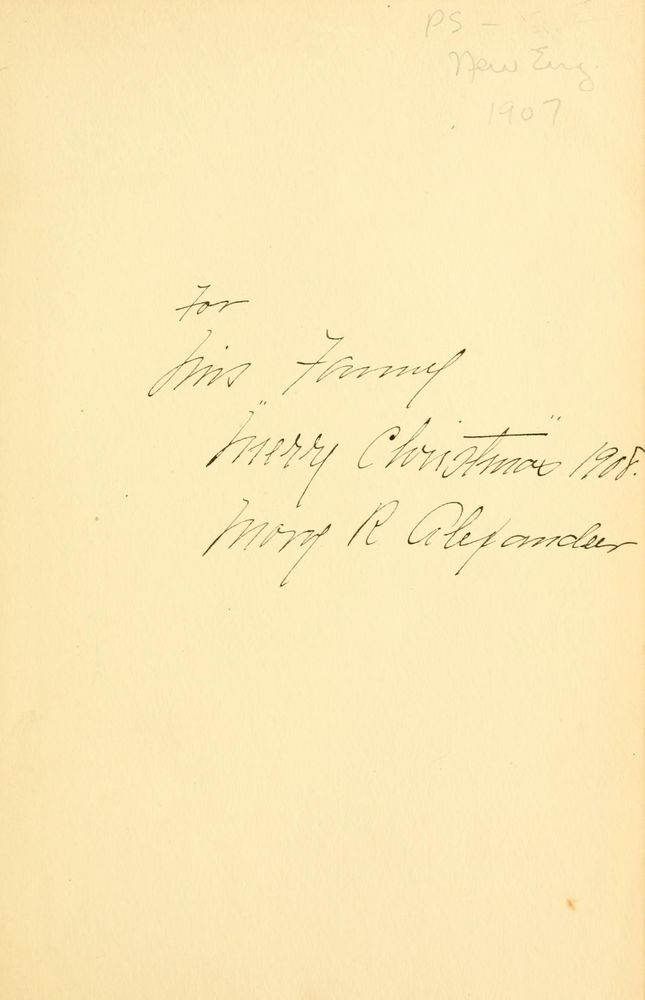 PS -
New Eng.
1907
For
Miss Fanny
"Merry Christmas" 1908.
Mary R Alexander